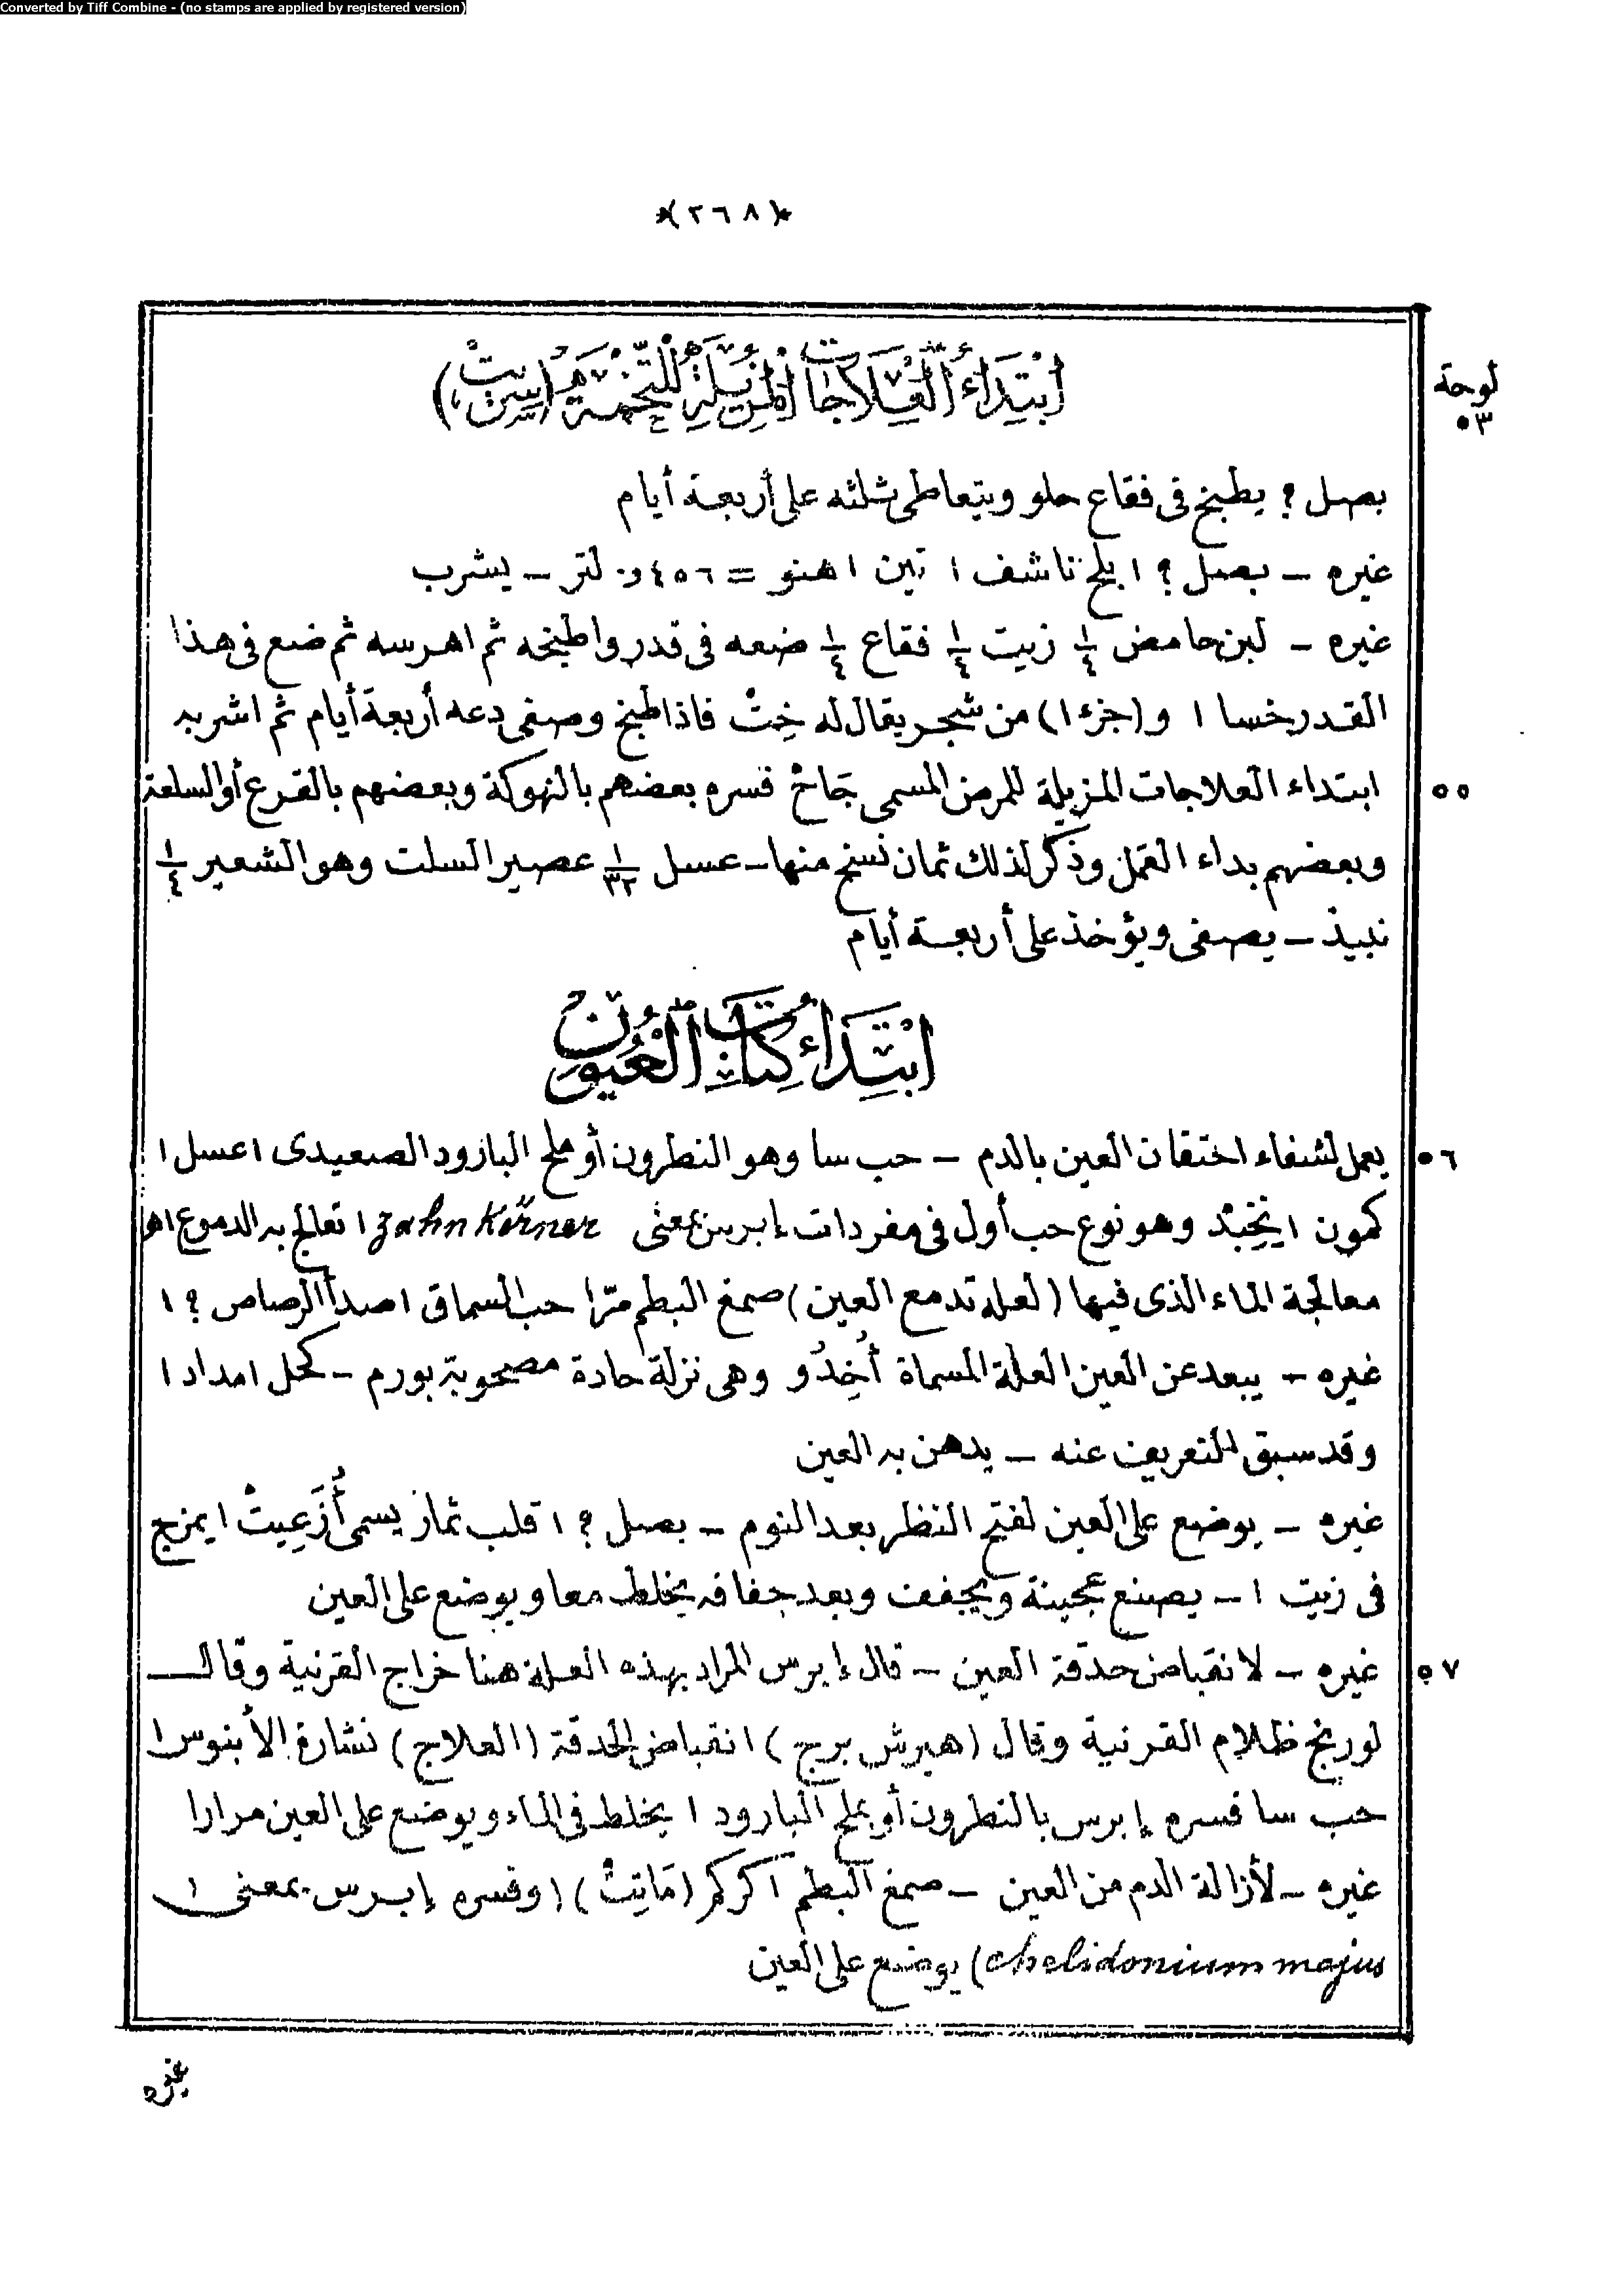 Converted by Tiff Combine - (no stamps are applied by registered version)
*(٢٦٨)*
لوحة
٥٣
ابتداء العلاجات المزيلة للتخمة
بصل ؟ يطبخ فى فقاع حلو ويتعاطى ثلثه على أربعة أيام
غيره – بصل ؟ ١ بلح ناشف ١ تين ١ هنو = ٤٥٦و٠ لتر – يشرب
غيره – لبن حامض ١/٤ زيت ١/٤ فقاع ١/٤ ضعه فى قدر واطبخه ثم اهرسه ثم ضع فى هذا
القدر خسا ١ و(جزء ١) من شجر يقال له خِتْ فاذا طبخ وصفى دعه أربعة أيام ثم اشربه
٥٥ ابتداء العلاجات المزيلة للمرض المسمى جَاخْ فسره بعضهم بالنهوكة وبعضهم بالقرع أو السلعة
وبعضهم بداء القمل وذكر لذلك ثمان نسخ منها – عسل ١/٣٢ عصير السلت وهو الشعير ١/٤
نبيذ – يصفى ويؤخذ على أربعة أيام
ابتداء كتاب العيون
٥٦ يعمل لشفاء احتقان العين بالدم – حب سا وهو النطرون أو ملح البارود الصعيدى ١ عسل ١
كمون ١ وهو نوع حب أول فى مفردات إبرس بمعنى zahn Körner ١ تعالج به الدموع اهـ
معالجة الماء الذى فيها (لعله تدمع العين) صمغ البطم مرّ ١ حب السماق ١ صدأ الرصاص ؟ ١
غيره – يبعد عن العين العلة المسماة أُخِدُو وهى نزلة حادة مصحوبة بورم – كحل ١ مداد ١
وقد سبق التعريف عنه – يدهن به العين
غيره – يوضع على العين لفتح النظر بعد النوم – بصل ؟ ١ قلب ثمار يسمى ١ يمزج
فى زيت ١ – يصنع عجينة ويجفف وبعد جفافه يخلط معا ويوضع على العين
٥٧ غيره – لانقباض حدقة العين – قال إبرس المراد بهذه العلة هنا خراج القرنية وقال
لورنج ظلام القرنية وقال (هيرش برج) انقباض الحدقة (العلاج) نشارة الأبنوس ١
حب سا فسره إبرس بالنطرون أو بملح البارود ١ يخلط فى الماء ويوضع على العين مرارا
غيره – لأزالة الدم من العين – صمغ البطم ١ كركم (مَاتِتْ) (وفسره إبرس بمعنى ١
chelidonium majus) يوضع على العين
غيره